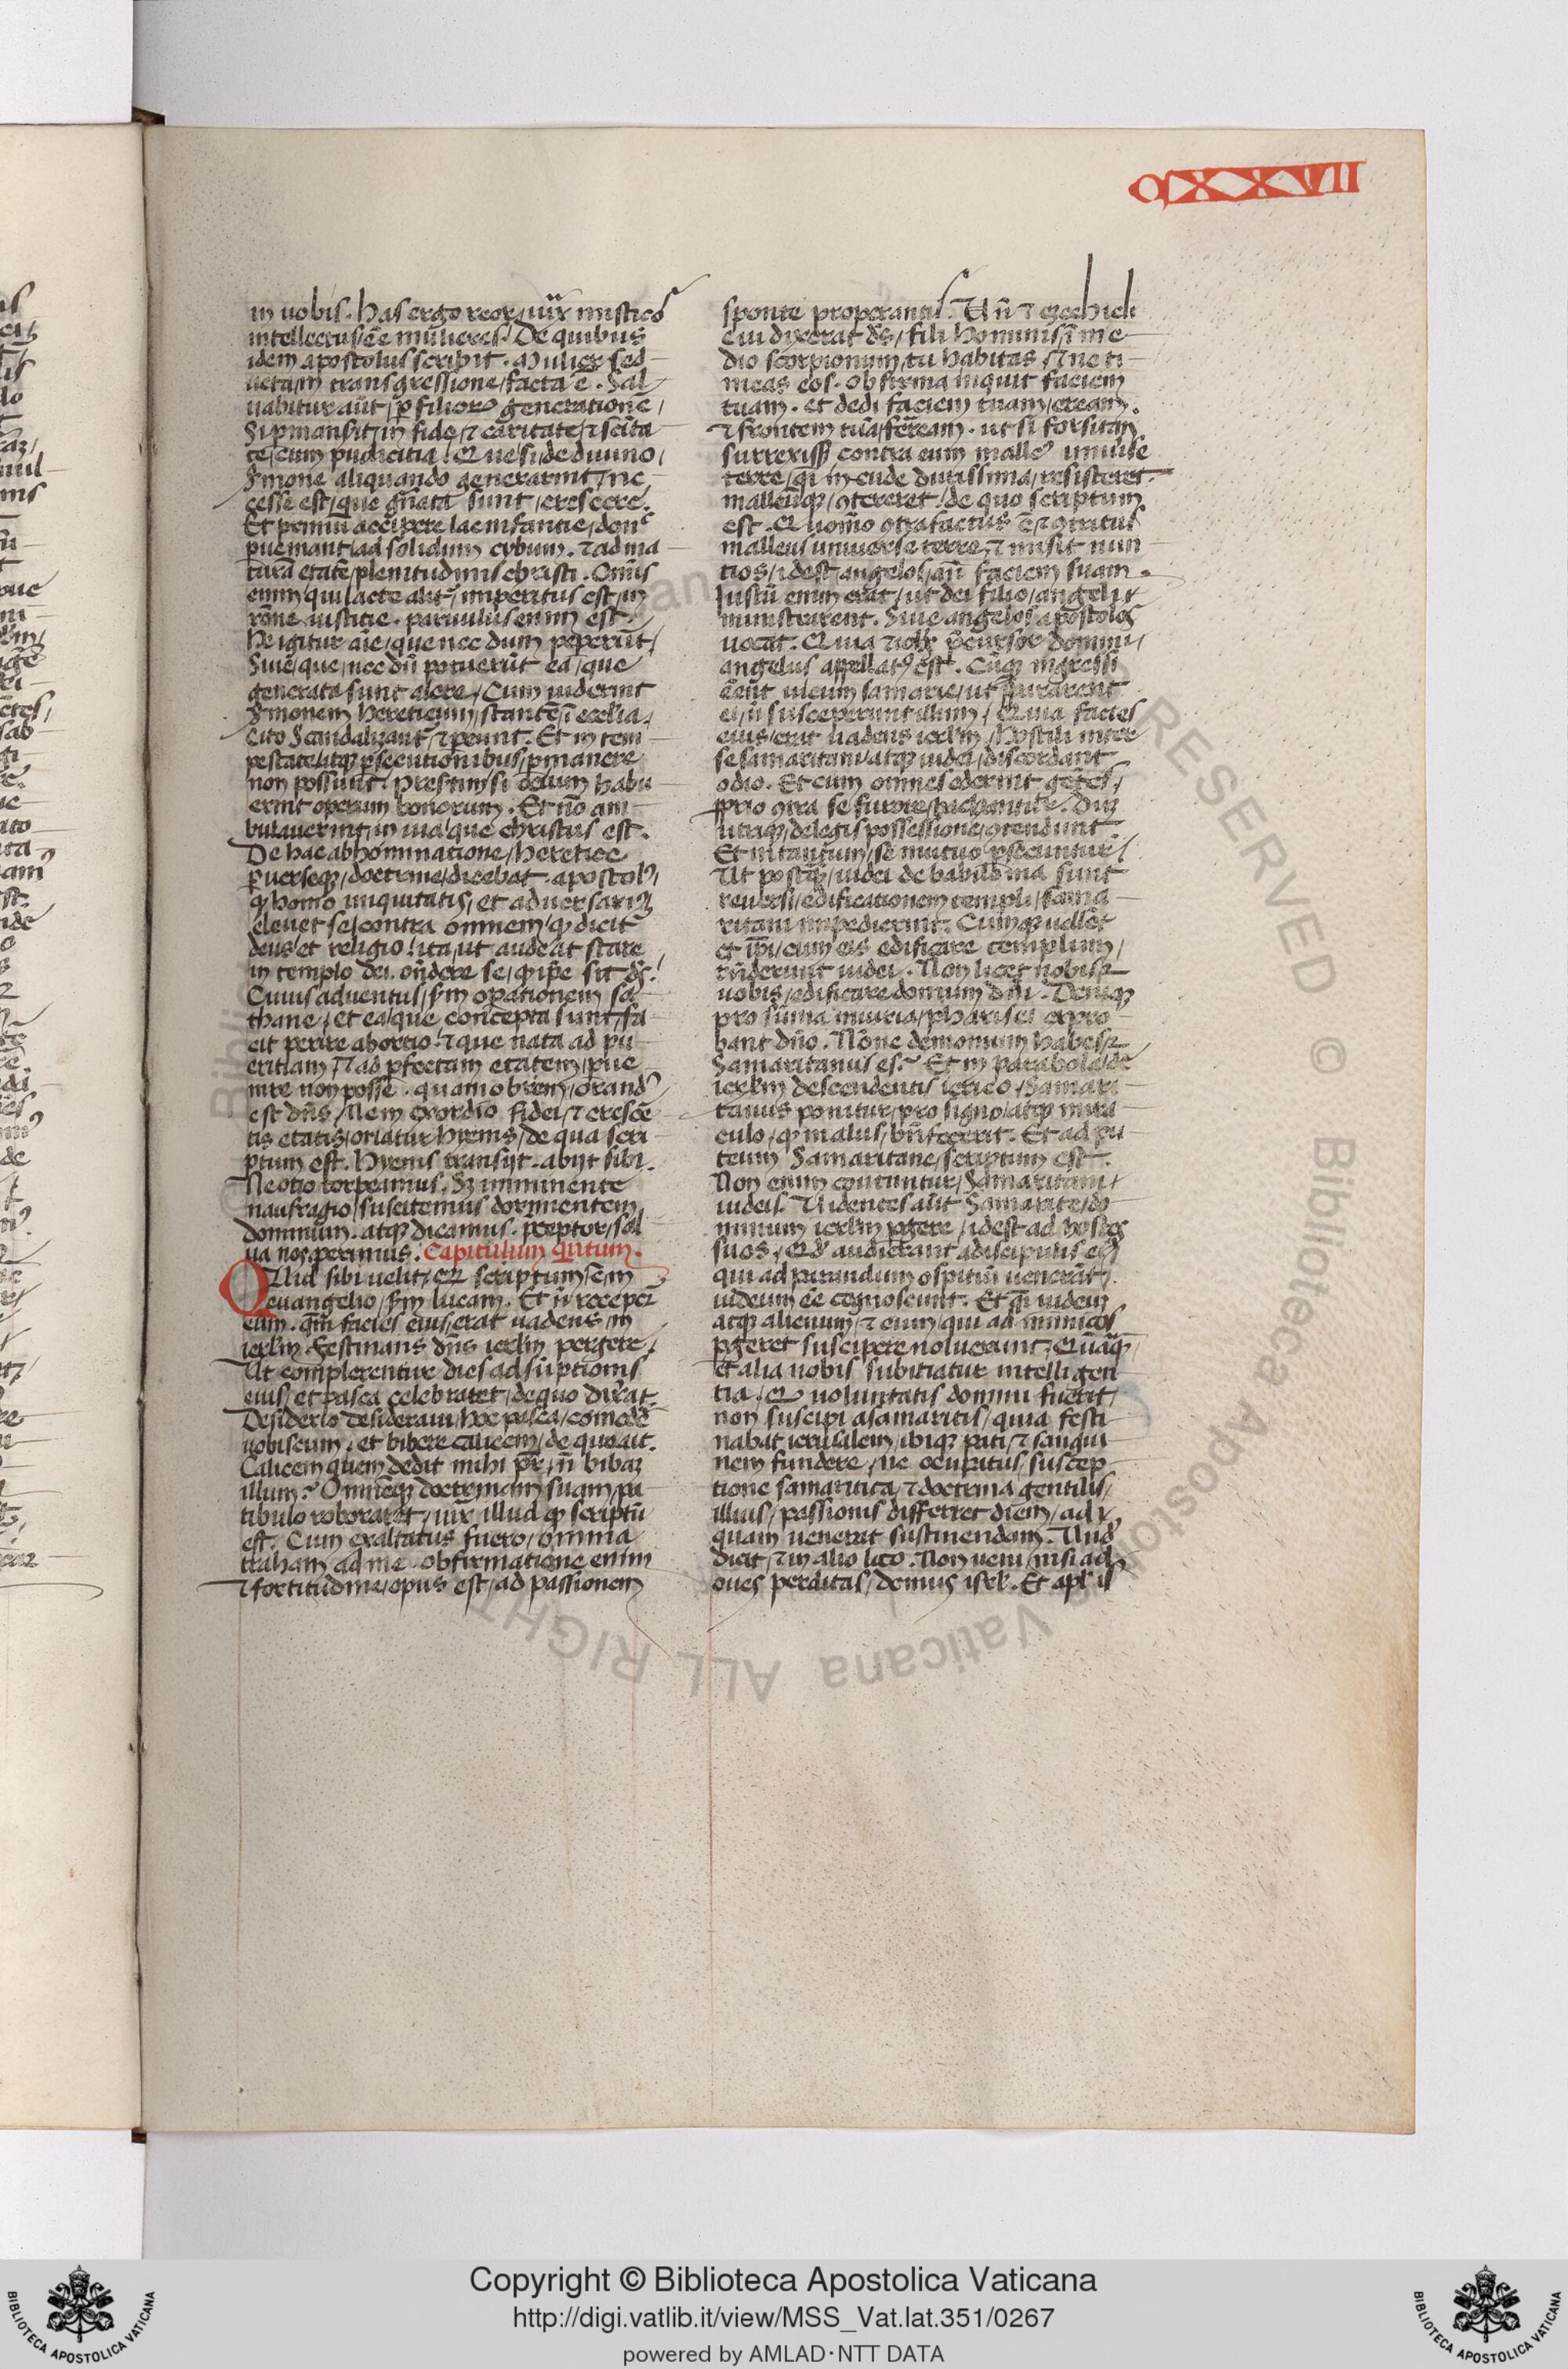 CXXVII
in uobis. Has ergo reor, iuxͬ misticos
intellectus, eē mulieres. De quibus
idem apostolus scribit. Mulier sed
ucta, in transgressione, facta ē. Sal
uabitur aūt, ꝑ filioꝝ generationē,
Si ꝑmansit, in fide, ⁊ caritate, ⁊ scīta
te, cum pudicitia. Que si, de diuino,
ẜmone aliquando generarint, ne
cesse est, que gn̄ata sunt, crescere.
Et primū accipere lac infantie, donͨ
ꝑueniant, ad solidum cybum. ⁊ ad ma
turā etatē, plenitudinis christi. Omīs
enim, qui lacte alitͬ, imperitus est, in
rōne iusticie. paruulus enim est.
He igitur aīe, que nec dum peperūt,
Siue, que, nec dū potuerūt ea, que
generata sunt alere, Cum uiderint
ẜmonem hereticum, stantē, ī ecclīa,
Cito Scandalizant̄, ⁊ ꝑeunt. Et in tem
pestate, atqꝫ ꝑsecutionibus, ꝑmanere
non possunt, Presertim si ocium habu
erint operum bonorum. Et nō am
bulauerint, in uia, que christus est.
De hac abhominatione, heretice
ꝑuerseqꝫ, doctrine, dicebat apostolꝰ,
ꝙ homo iniquitatis, et aduersariꝰ
eleuet se, contra omnem, ꝙ dicit̄
deus, et religio. ita, ut audeat stare
in templo dei. on̄dere se, ꝙ ip̄e sit ds̄.
Cuius aduentus, ẜm oꝑationem sa
thane, et ea, que concepta sunt, fa
cit perire abortio. ⁊ que nata ad pu
eritiam, ⁊ ad ꝑfectam etatem, ꝑue
nire non posse. quam obrem, orandꝰ
est dn̄s, Ne in exordio fidei, ⁊ crescē
tis etatis, oriatur hyems, de qua scri
ptum est. Hyems transijt. abijt sibi.
Ne otio torpeamus. Sꝫ imminente
naufragio, suscitemus dormientem
dominum. atqꝫ dicamus. p̄ceptor, sal
ua nos, perimus. Capitulum qn̄tum.
QUid sibi uelit, qꝫ scriptum, ē, in
euangelio, ẜm lucam. Et n̄ receper̄
eum. qm̄ facies eius, erat uadens, in
ierl̄m. Festinans dn̄s ierl̄m pergere,
Ut complerentur dies ad sūptionis
eius, et pasca celebraret, de quo dix̄at.
Desiderio desideraui, hoc pasca, comedē
uobiscum. et bibere calicem, de quo ait.
Calicem quem dedit mihi pr̄, n̄ bibaꝫ
illum? Omnēqꝫ doctrinam suam, pa
tibulo roboraret, iuxͬ illud ꝙ scriptū
est. Cum exaltatus fuero, omnia
traham ad me. obfirmatione enim
⁊ fortitudine, opus est, ad passionem
sponte properantis. Un̄ ⁊ ezechieli
cui dixerat ds̄, fili hominis, ī me
dio scorpionum, tu habitas, ⁊ ne ti
meas eos. obfirma inquit faciem
tuam. et dedi faciem tuam, eream.
⁊ frontem tuā, ferream. ut si forsitan
surrexiss; contra eum malleꝰ uniuͥse
terre, qͥ incude durissima, resisteret.
malleūqꝫ, ꝯtereret. de quo scriptum
est. Quomō ꝯfractus ē, ⁊ ꝯtritus
malleus uniuerse terre, ⁊ misit nun
tios, idest, angelos, an̄ faciem suam.
Iustū enim erat, ut dei filio, angeli
ministrarent. Siue angelos apostolos
uocat. Quia ⁊ iohēs p̄cursor domini,
angelus appellatꝰ est. Cūqꝫ ingressi
eēnt uicum samarie, ut ꝑararent
ei, n̄ susceperunt illum, Quia facies
eius, erat uadens ierl̄m, Hostili inter
se samaritani, atqꝫ iudei, discordant
odio. Et cum omnes oderint gētes,
ꝓprio ꝯtra se furore, bachantͬ. Dum
utriqꝫ, de legis possessione, ꝯtendunt.
Et in tantum, se mutuo ꝑsecuntur,
Ut postqꝫ, iudei de babilonia sunt
reuersi, edificationem templi, sama
ritani impedierint. Cumqꝫ uellēt
et ip̄i, cum eis edificare templum,
rn̄derunt iudei. Non licet nobis, ⁊
uobis, edificare domum dn̄i. Deniqꝫ
pro sūma iniuria, pharisei expro
bant dn̄o. Nōne demonium habes, ⁊
Samaritanus es? Et in parabola, de
ierl̄m descendentis ierico, Samari
tanus ponitur, pro signo, atqꝫ mira
culo, ꝙ malus, bn̄fecerit. Et ad pu
teum Samaritane, scriptum est.
Non enim coutuntur, Samaritani,
iudeis. Uidentes aūt Samarite, do
minum ierl̄m ꝑgere, idest ad hostes
suos, Qd̄ audierant a discipulis eiꝰ
qui ad parandum ospitiū uenerāt,
iudeum eē cognoscunt. Et qͣi iudeum
atqꝫ alienum, ⁊ eum, qui ad inimicos
ꝑgeret suscipere noluerunt, Quāqꝫ
et alia nobis subitiatur intelligen
tia, Qꝫ uoluntatis domini fuerit,
non suscipi a samaritis, quia festi
nabat ierusalem, ibiqꝫ pati, ⁊ sangui
nem fundere, ne ocupatus, suscep
tione samaritica, ⁊ doctrina gentilis,
illius, passionis differret diem, ad
quam uenerat sustinendam. Unde
dicit, ⁊ in alio loco. Non ueni, nisi ad
oues perditas, domus isrl̄. Et apl̄is
Copyright © Biblioteca Apostolica Vaticana
http://digi.vatlib.it/view/MSS_Vat.lat.351/0267
powered by AMLAD·NTT DATA
BIBLIOTECA APOSTOLICA VATICANA
BIBLIOTECA APOSTOLICA VATICANA